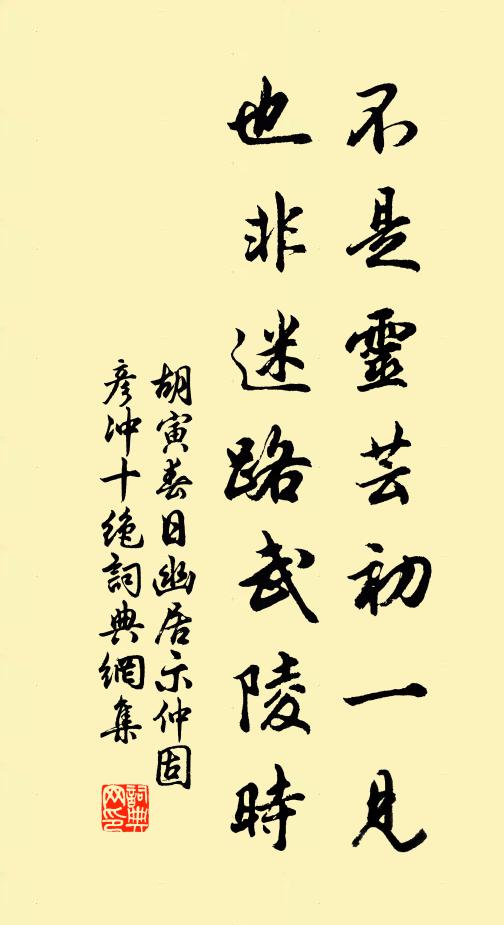 不是靈芸初一見
也非迷路武陵時
胡寅春日幽居示仲固
彥沖十絶詞典網集
詞典网印